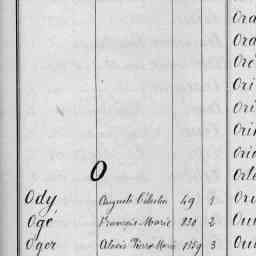 O
Ody, Auguste Célestin 49 1
Ogé, François Marie 230 2
Oger Alexis Pierre Marie 1159 3
Ora
Ora
Oré
Ori
Ori
Orin
Orio
Orl